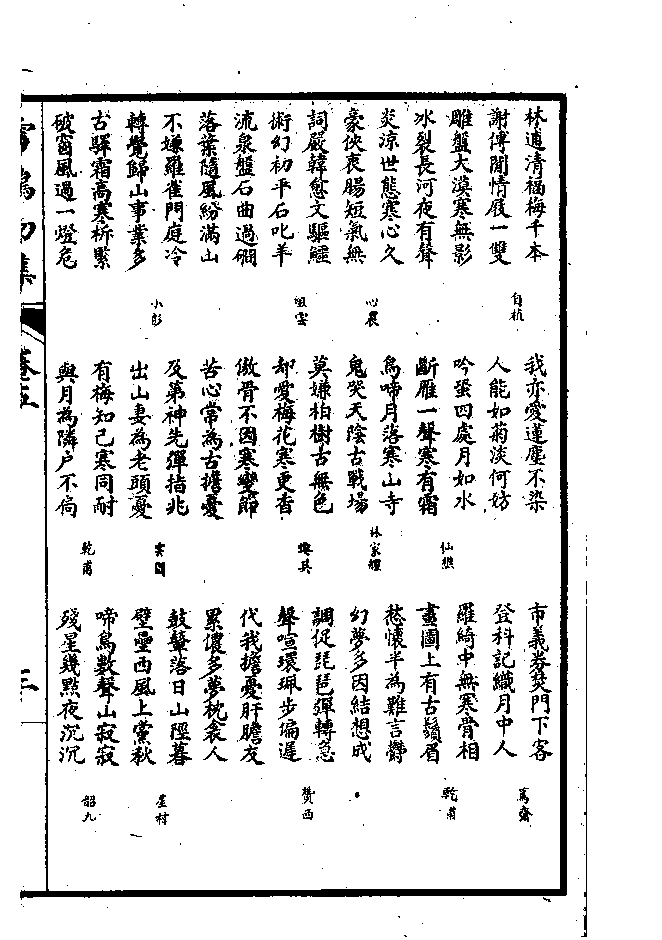 林逋清福梅千本
謝傅閒情屐一雙
自杭
雕盤大漠寒無影
冰裂長河夜有聲
炎涼世態寒心久
豪俠衷腸短氣無
心農
詞嚴韓愈文驅鱷
術幻初平石叱羊
咀雲
流泉盤石曲過磵
落葉隨風紛滿山
不嫌羅雀門庭冷
轉覺歸山事業多
小彭
古驛霜高寒柝緊
破窗風過一燈危
我亦愛蓮塵不染
人能如菊淡何妨
吟蛩四處月如水
斷雁一聲寒有霜
仙樵
烏啼月落寒山寺
鬼哭天陰古戰場
莫嫌柏樹古無色
却愛梅花寒更香
傲骨不因寒變節
苦心常為古擔憂
及第神先彈指兆
出山妻為老頭憂
有梅知己寒同耐
與月為隣户不扃
乾甫
市義券焚門下客
登科記織月中人
篤齋
羅綺中無寒骨相
畫圖上有古鬚眉
乾甫
愁懷半為難言鬱
幻夢多因結想成
調促琵琶彈轉急
聲喧環珮步偏遲
贊西
代我擔憂肝膽友
累儂多夢枕衾人
鼓鼙落日山陘暮
壁壘西風上黨秋
星村
啼鳥數聲山寂寂
殘星幾點夜沉沉
韶九
雪鴻初集
卷五
三